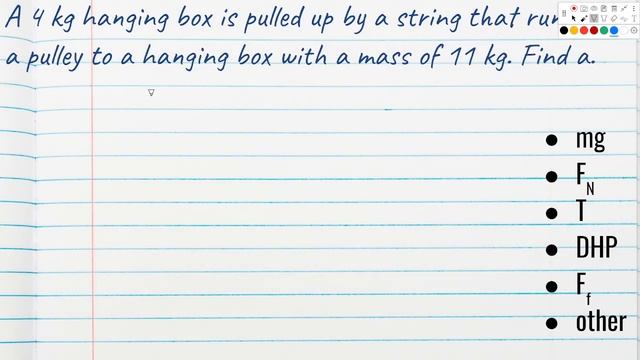 A 4 kg hanging box is pulled up by a string that
a pulley to a hanging box with a mass of 11 kg. Find a.
mg
F_N
T
DHP
F_f
other